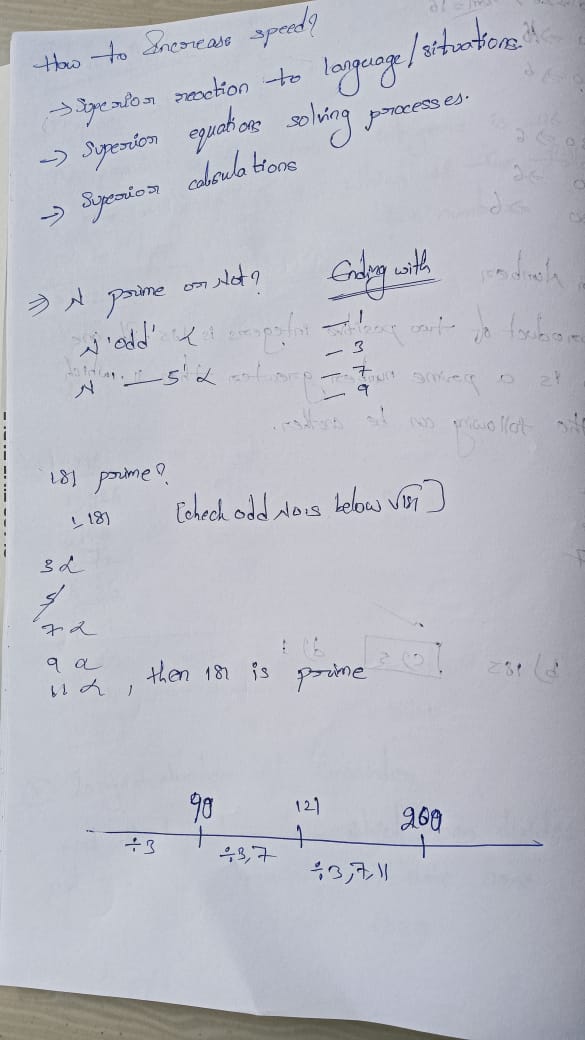 How to Increase speed?
→ Superior reaction to language/situations.
→ Superior equations solving processes.
→ Superior calculations
⇒ N prime or Not? Ending with
N 'odd' - 1
- 3
N — 5' - 7
- 9
181 prime?
181 [check odd Nois below √181]
3
5
7
9
11 , then 181 is prime
90 121 200
÷3 ÷3,7 ÷3,7,11